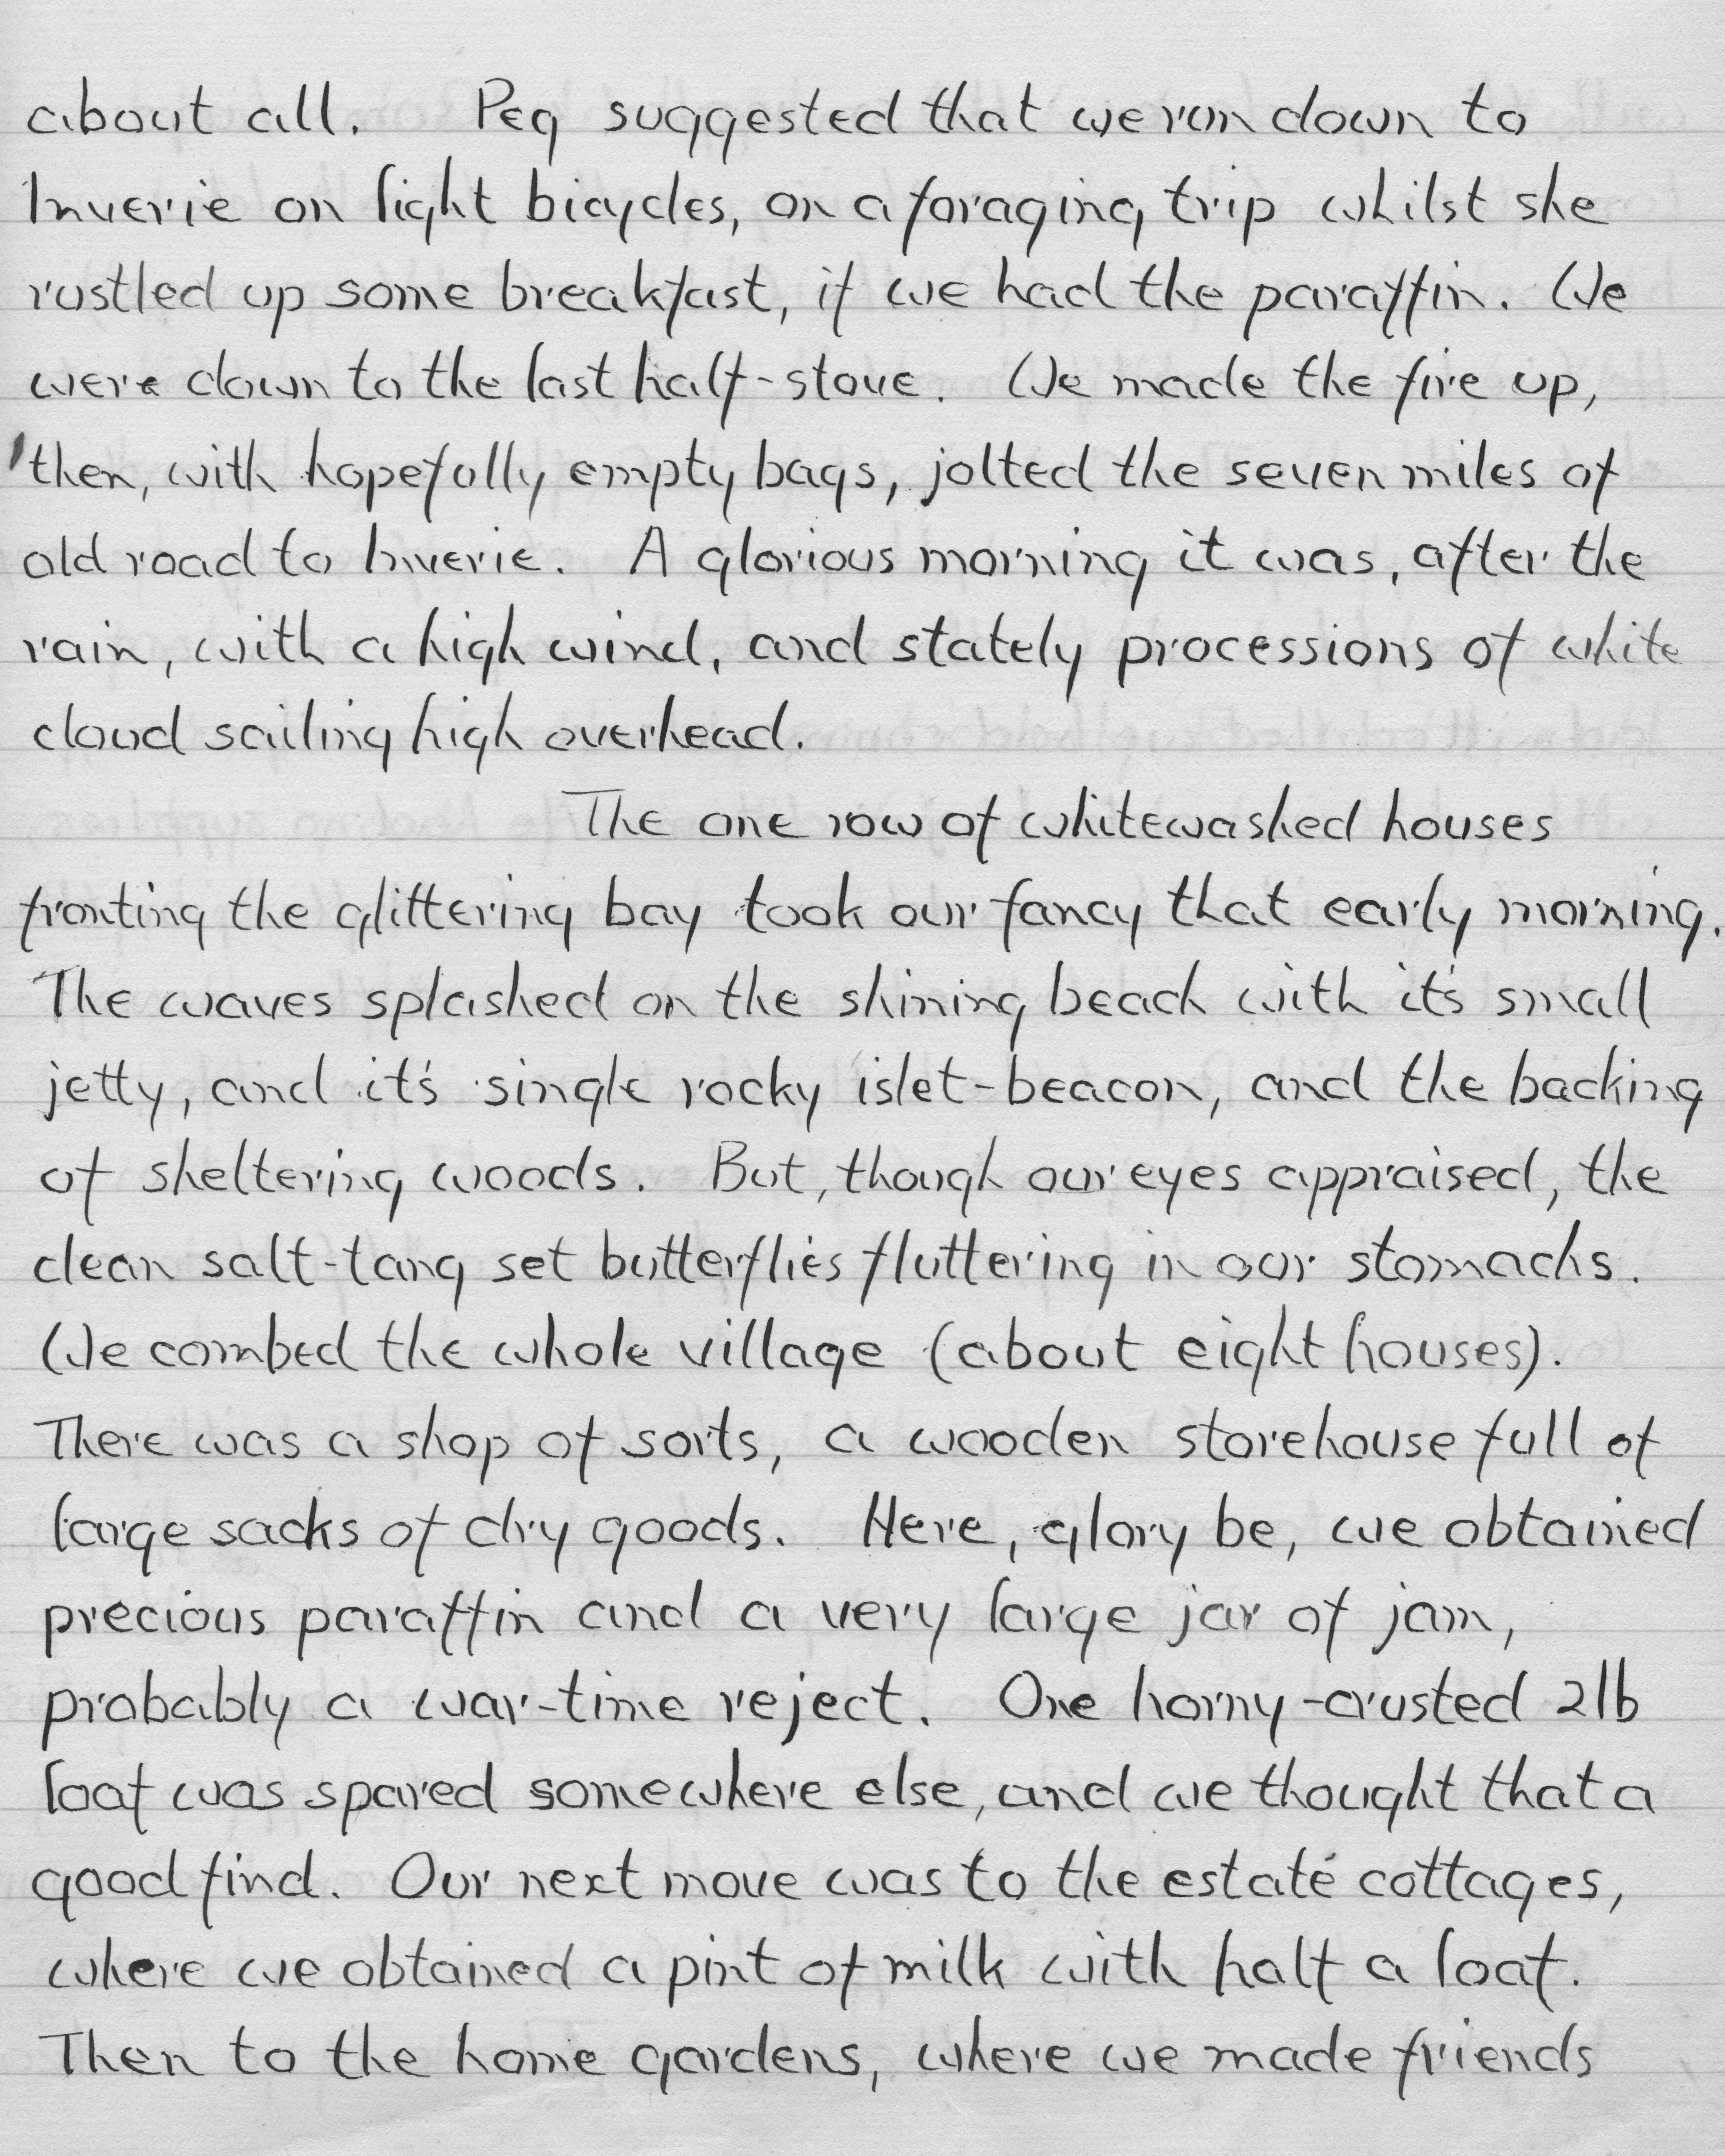 about all. Peg suggested that we run down to
Inverie on light bicycles, on a foraging trip whilst she
rustled up some breakfast, if we had the paraffin. We
were down to the last half-stove. We made the fire up,
then, with hopefully empty bags, jolted the seven miles of
old road to Inverie. A glorious morning it was, after the
rain, with a high wind, and stately processions of white
cloud sailing high overhead.
The one row of whitewashed houses
fronting the glittering bay took our fancy that early morning.
The waves splashed on the shining beach with it's small
jetty, and it's single rocky islet-beacon, and the backing
of sheltering woods. But, though our eyes appraised, the
clean salt-tang set butterflies fluttering in our stomachs.
We combed the whole village (about eight houses).
There was a shop of sorts, a wooden storehouse full of
large sacks of dry goods. Here, glory be, we obtained
precious paraffin and a very large jar of jam,
probably a war-time reject. One horny-crusted 2lb
loaf was spared somewhere else, and we thought that a
good find. Our next move was to the estate cottages,
where we obtained a pint of milk with half a loaf.
Then to the home gardens, where we made friends